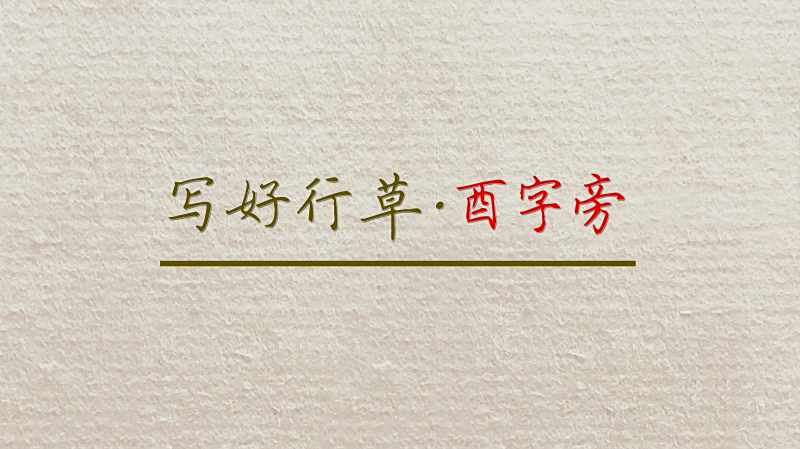 写好行草·酉字旁